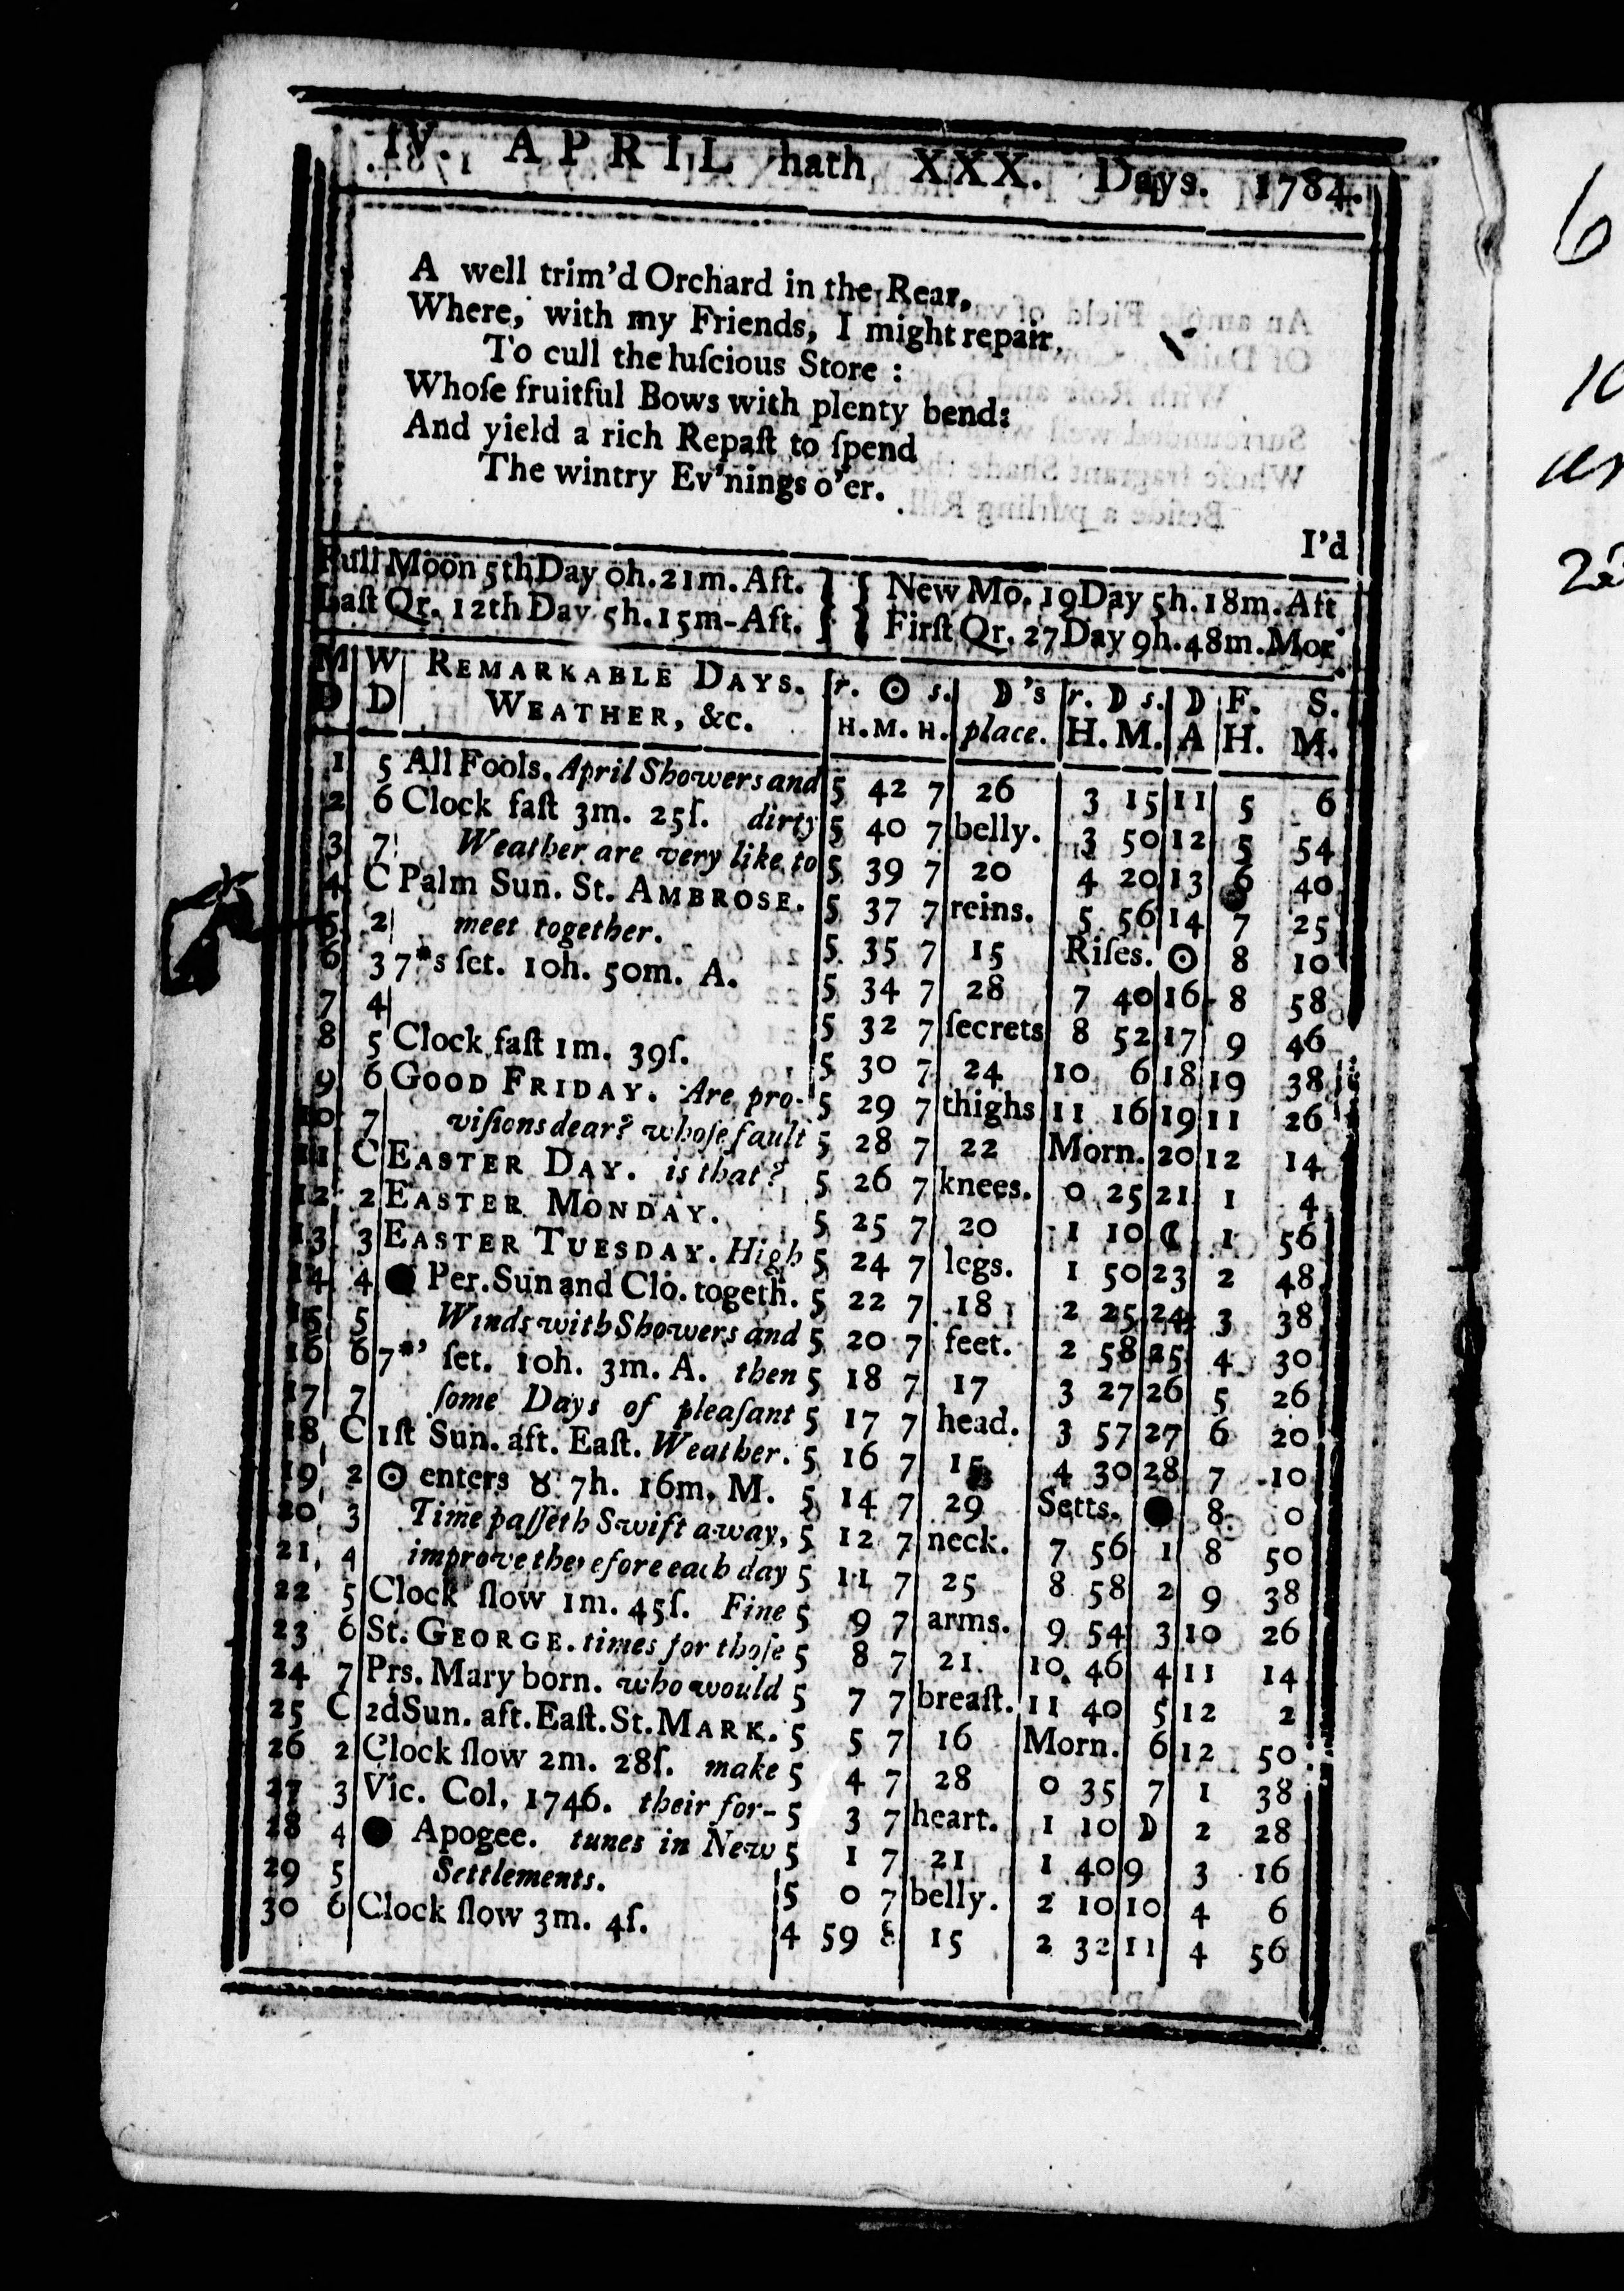 IV. APRIL hath XXX. Days. 1784.
A well trim'd Orchard in the Rear,
Where, with my Friends, I might repair
To cull the luſcious Store :
Whoſe fruitful Bows with plenty bend:
And yield a rich Repaſt to ſpend
The wintry Ev'nings o'er.
I'd
Full Moon 5th Day 0h. 21m. Aft. } { New Mo. 19 Day 5h. 18m. Aft
Laſt Qr. 12th Day 5h. 15m-Aft. } { Firſt Qr. 27 Day 9h. 48m. Mor.
M W REMARKABLE DAYS. r. ☉ s. D's r. D s. D F. S.
D D WEATHER, &c. H. M. H. place. H. M. A H. M.
1 5 All Fools. April Showers and 5 42 7 26 3 15 11 5 6
2 6 Clock faſt 3m. 25ſ. dirty 5 40 7 belly. 3 50 12 5 54
3 7 Weather are very like to 5 39 7 20 4 20 13 6 40
4 C Palm Sun. St. AMBROSE. 5 37 7 reins. 5 56 14 7 25
5 2 meet together. 5 35 7 15 Riſes. ☉ 8 10
6 3 7*s ſet. 10h. 50m. A. 5 34 7 28 7 40 16 8 58
7 4 5 32 7 ſecrets 8 52 17 9 46
8 5 Clock faſt 1m. 39ſ. 5 30 7 24 10 6 18 19 38
9 6 GOOD FRIDAY. Are pro- 5 29 7 thighs 11 16 19 11 26
10 7 viſions dear? whoſe fault 5 28 7 22 Morn. 20 12 14
11 C EASTER DAY. is that? 5 26 7 knees. 0 25 21 1 4
12 2 EASTER MONDAY. 5 25 7 20 1 10 ☾ 1 56
13 3 EASTER TUESDAY. High 5 24 7 legs. 1 50 23 2 48
14 4 ● Per. Sun and Clo. togeth. 5 22 7 18 2 25 24 3 38
15 5 Winds with Showers and 5 20 7 feet. 2 58 25 4 30
16 6 7*' ſet. 10h. 3m. A. then 5 18 7 17 3 27 26 5 26
17 7 ſome Days of pleaſant 5 17 7 head. 3 57 27 6 20
18 C 1ſt Sun. aft. Eaſt. Weather. 5 16 7 15 4 30 28 7 10
19 2 ☉ enters ♉ 7h. 16m. M. 5 14 7 29 Setts. ● 8 0
20 3 Time paſſeth Swift away, 5 12 7 neck. 7 56 1 8 50
21 4 improve therefore each day 5 11 7 25 8 58 2 9 38
22 5 Clock ſlow 1m. 45ſ. Fine 5 9 7 arms. 9 54 3 10 26
23 6 St. GEORGE. times for thoſe 5 8 7 21 10 46 4 11 14
24 7 Prs. Mary born. who would 5 7 7 breaſt. 11 40 5 12 2
25 C 2d Sun. aft. Eaſt. St. MARK. 5 5 7 16 Morn. 6 12 50
26 2 Clock ſlow 2m. 28ſ. make 5 4 7 28 0 35 7 1 38
27 3 Vic. Col. 1746. their for- 5 3 7 heart. 1 10 D 2 28
28 4 ● Apogee. tunes in New 5 1 7 21 1 40 9 3 16
29 5 Settlements. 5 0 7 belly. 2 10 10 4 6
30 6 Clock ſlow 3m. 4ſ. 4 59 8 15 2 32 11 4 56
6
10